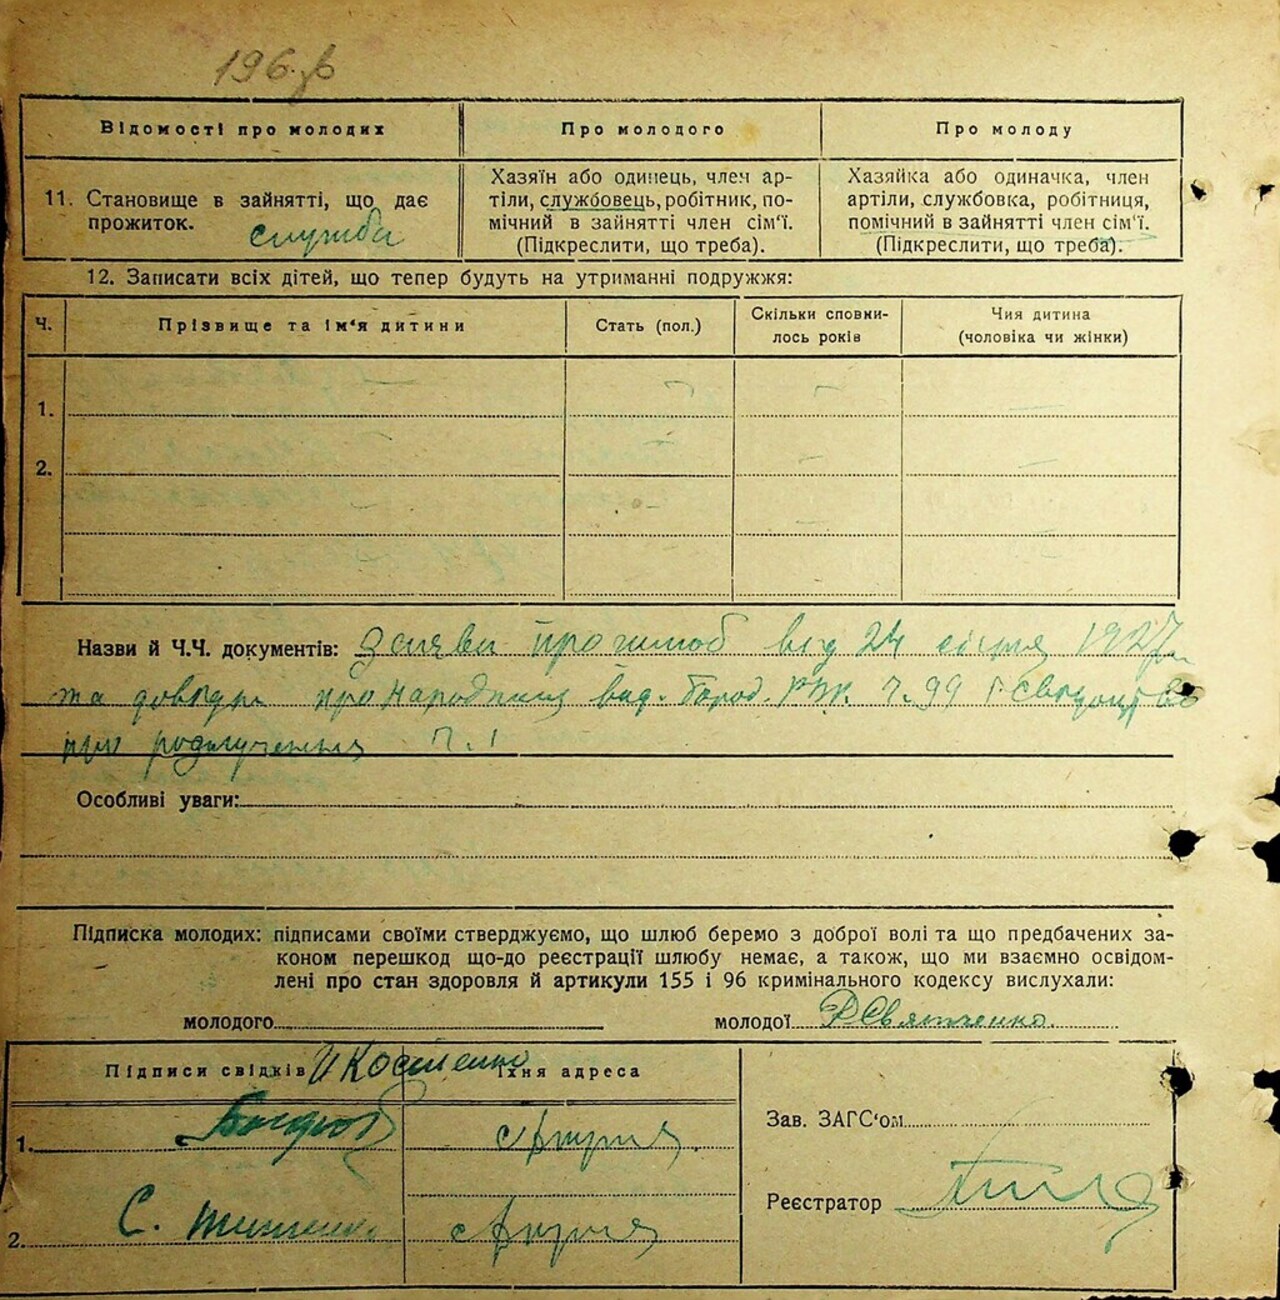 196.
Відомості про молодих
Про молодого
Про молоду
11. Становище в зайнятті, що дає прожиток.
служба
Хазяїн або одинець, член ар-
тіли, службовець, робітник, по-
мічний в зайнятті член сім'ї.
(Підкреслити, що треба).
Хазяйка або одиначка, член
артіли, службовка, робітниця,
помічний в зайнятті член сім'ї.
(Підкреслити, що треба).
12. Записати всіх дітей, що тепер будуть на утриманні подружжя:
Ч.
Прізвище та ім'я дитини
Стать (пол.)
Скільки сповни-
лось років
Чия дитина
(чоловіка чи жінки)
1.
2.
Назви й Ч.Ч. документів: про шлюб від 24 січня 1927
та про народження вид. Город. РВК. Ч. 99
про Ч. 1
Особливі уваги:
Підписка молодих: підписами своїми стверджуємо, що шлюб беремо з доброї волі та що предбачених за-
коном перешкод що-до реєстрації шлюбу немає, а також, що ми взаємно освідом-
лені про стан здоровля й артикули 155 і 96 кримінального кодексу вислухали:
молодого
молодої Святченко.
Підписи свідків
И Костенко
Їхня адреса
1.
Зав. ЗАГС'ом
Реєстратор
2. С.